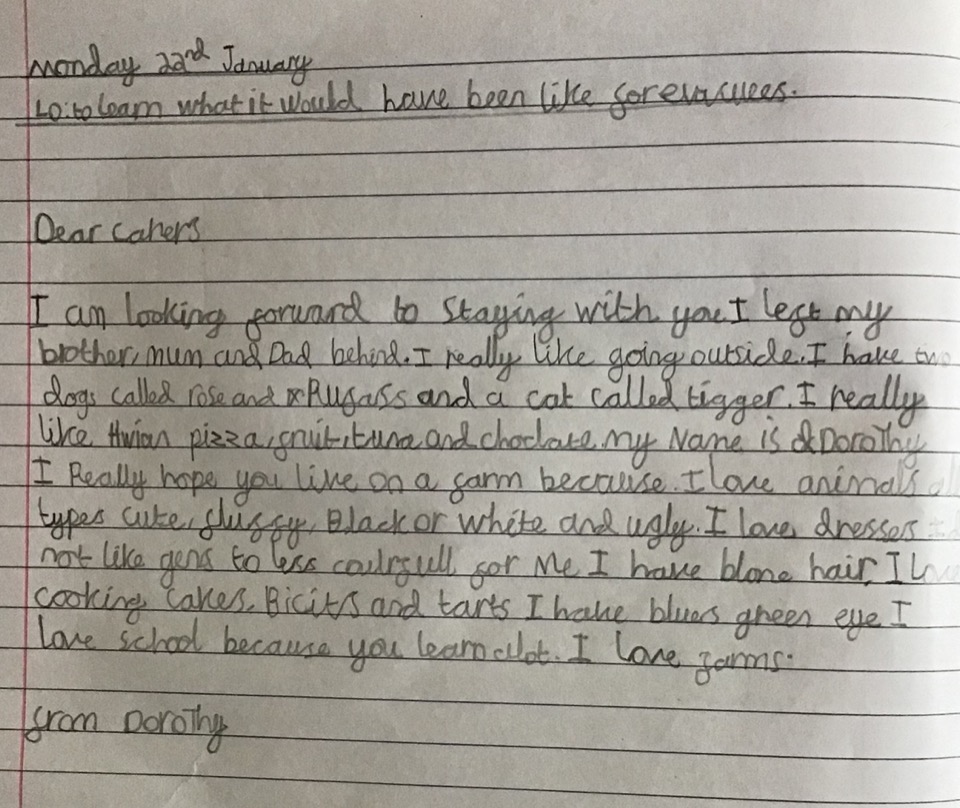 monday 22nd January
LO: to learn what it would have been like for evacuees.
Dear carers
I am looking forward to Staying with you I left my
brother, mum and Dad behind. I really like going outside. I have two
dogs called rose and and a cat called tigger. I really
like pizza, fruit, tuna and choclate. my Name is Dorothy
I Really hope you live on a farm because. I love animals all
types cute, fluffy, Black or white and ugly. I love dresses
not like gens to less coulrfull for Me I have blone hair, I
cooking cakes, Bicits and tarts I have blues green eye I
love school because you learn alot. I love farms.
from Dorothy